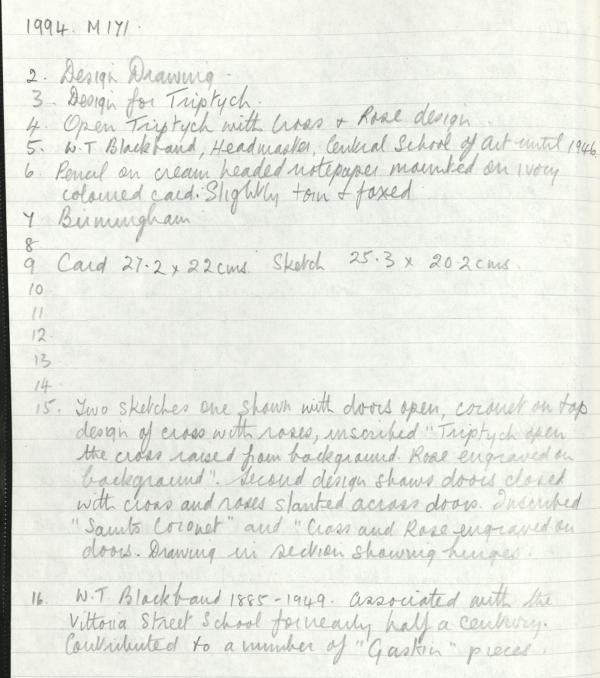 1994. M 171.
2. Design Drawing.
3. Design for Triptych.
4. Open Triptych with Cross & Rose design
5. W.T Blackband, Headmaster, Central School of Art until 1946.
6. Pencil on cream headed notepaper mounted on ivory
coloured card. Slightly torn & foxed
7 Birmingham
8
9 Card 27.2 x 22 cms. Sketch 25.3 x 20.2 cms.
10
11
12.
13
14
15. Two sketches one shown with doors open, coronet on top
design of cross with roses, inscribed "Triptych open
the cross raised from background. Rose engraved on
background". Second design shows doors closed
with cross and roses slanted across doors. Inscribed
"Saints Coronet" and "Cross and Rose engraved on
doors. Drawing in section showing hinges.
16. W.T. Blackband 1885-1949. Associated with the
Vittoria Street School for nearly half a century.
Contributed to a number of "Gaskin" pieces.